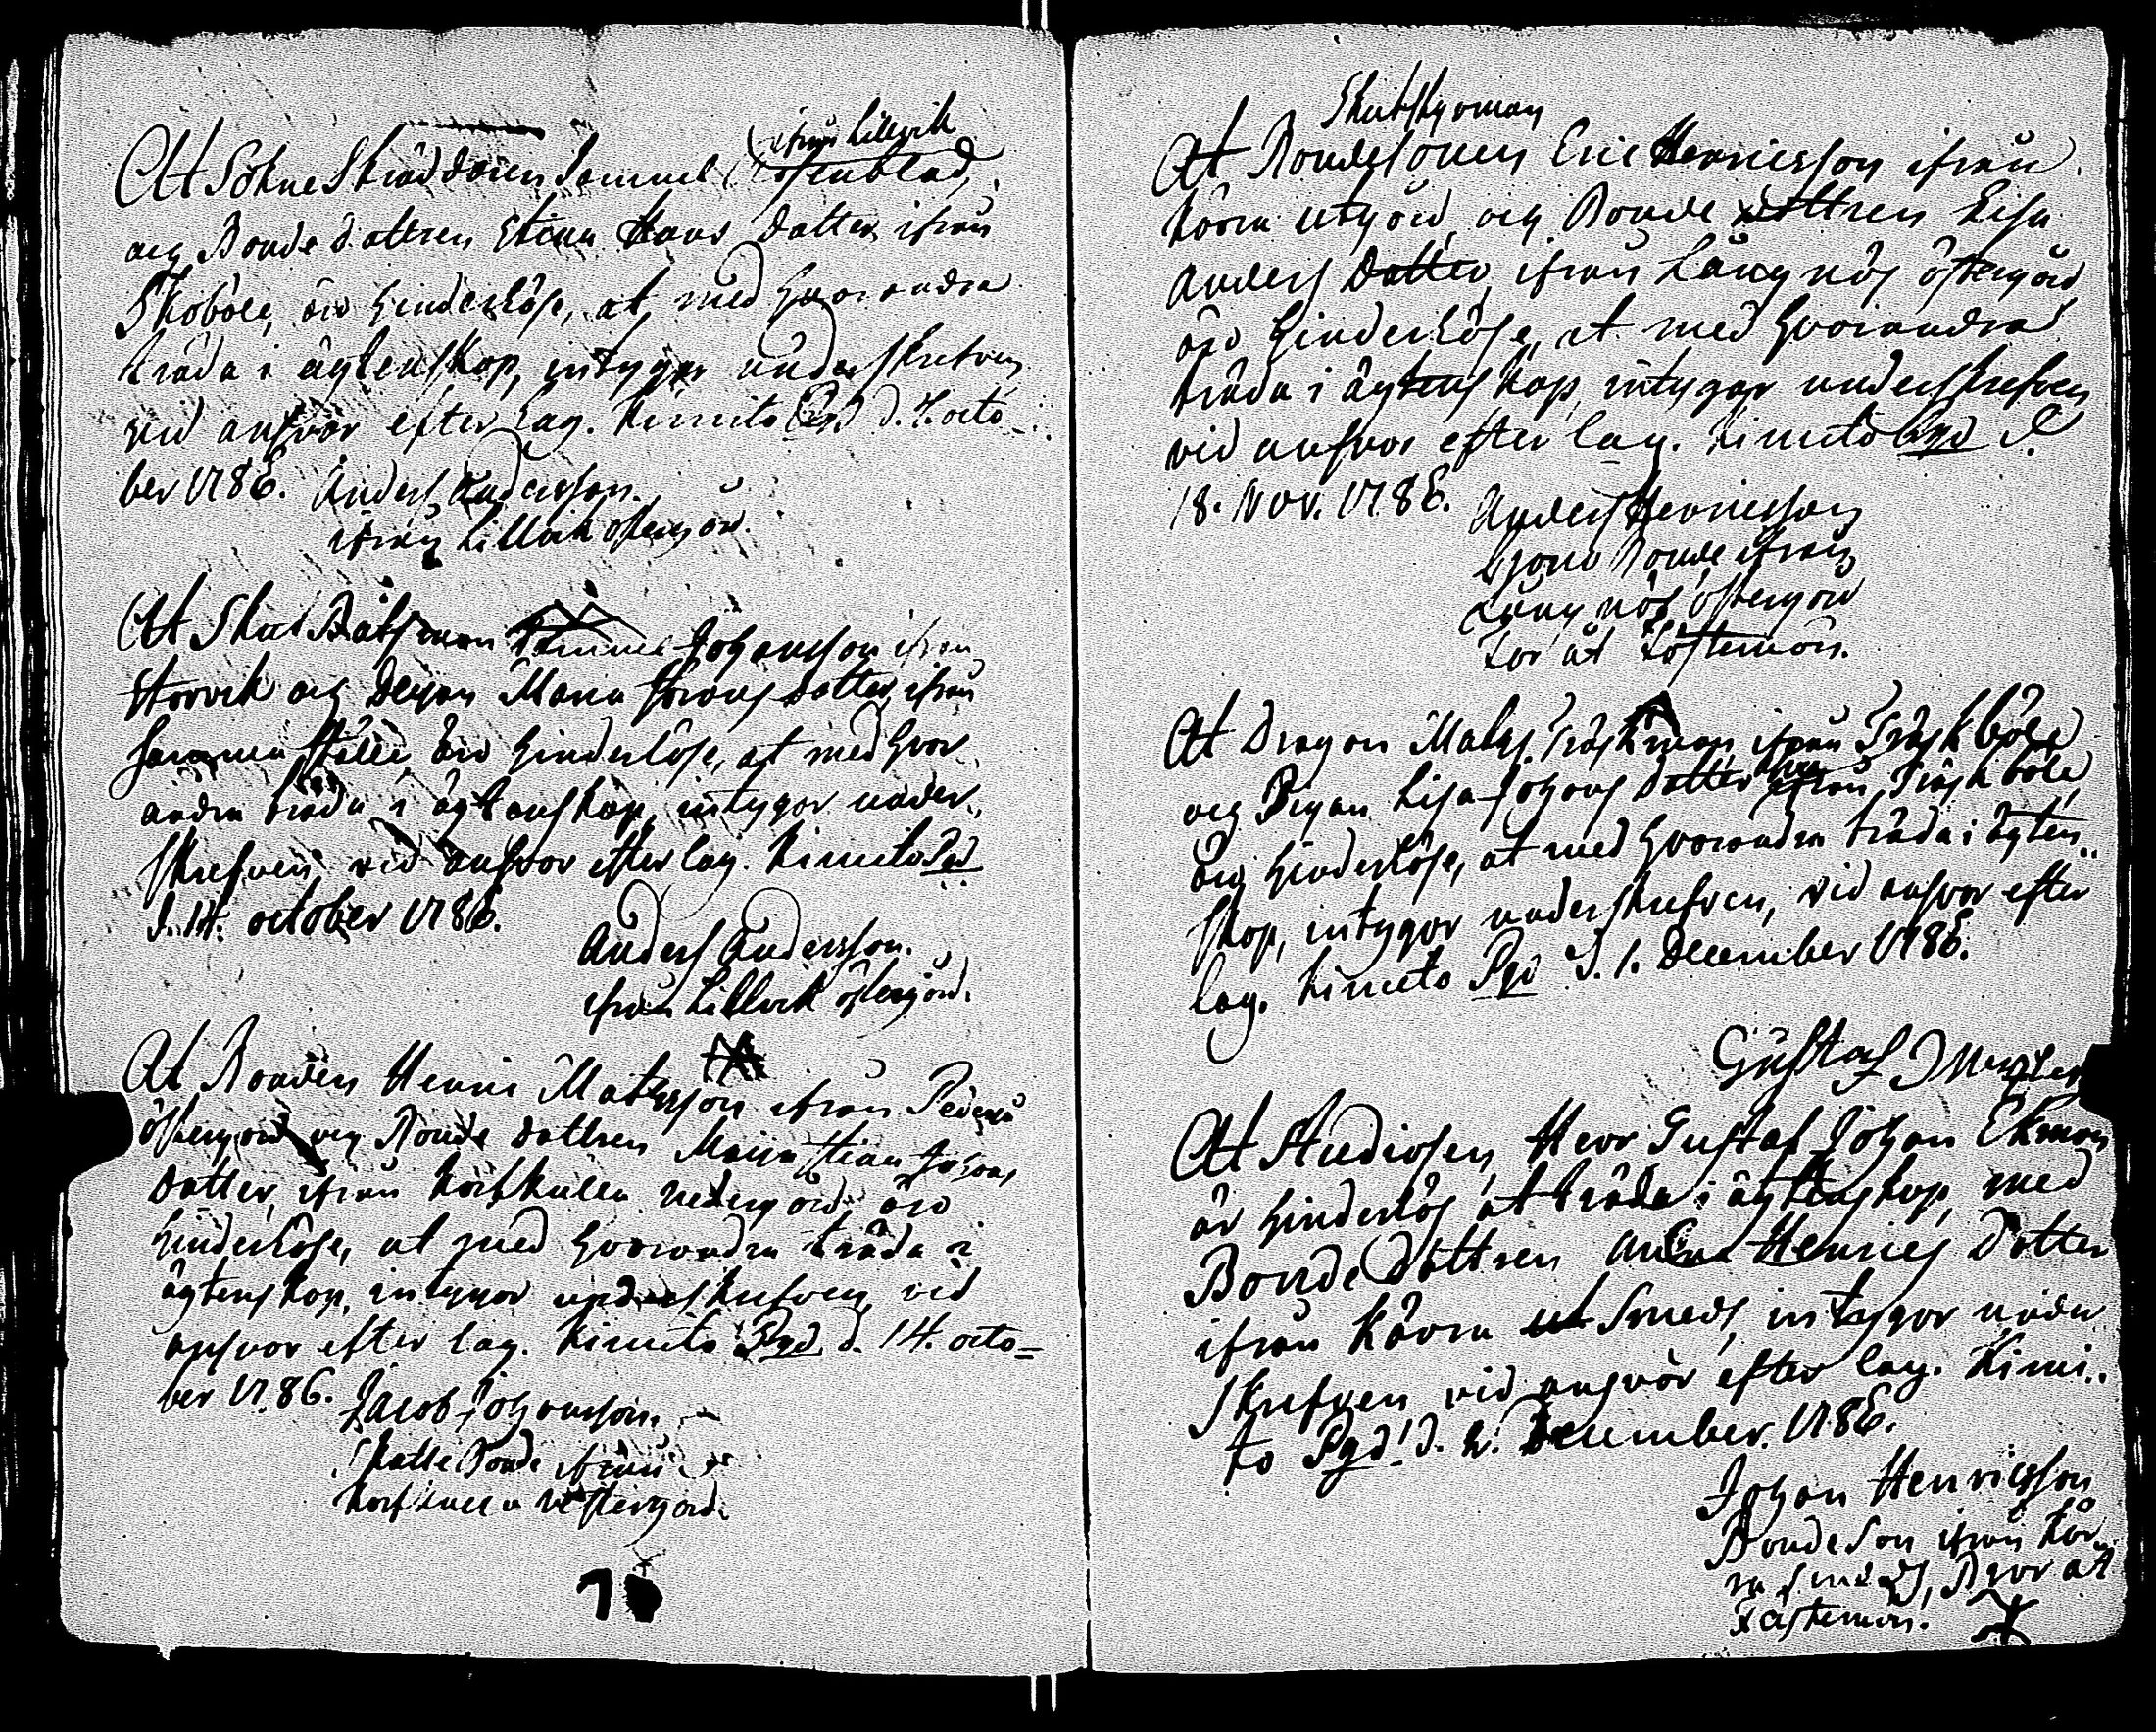 ifrån Lillvik
At Sokne Skräddaren Samuel Rosenblad,
och Bonde dottren Stina Hans dotter ifrån
Skoböle, äro hinderlöse, at med hvarandra
träda i ägtenskap, intygar underskrefven
vid answar efter lag. Kimito Pgd d. 7. octo-
ber 1786. Anders Andersson.
ifrån Lillvik östergård.
At Skut Båtsman Johansson ifrån
Storvik och Deyan Maria Johans dotter, ifrån
samma ställe äro hinderlöse, at med hvar
andra träda i ägtenskap, intygar under-
skrefven vid answar efter lag. Kimito Pgd
d. 14. october 1786.
Anders Andersson.
ifrån Lillvik östergård.
At Bonden Henric Matsson ifrån Pederså
östergård och Bonde dottren Maija Stina Johans
dotter, ifrån Korfkulla nedergård äro
hinderlöse, at med hvarandra träda i
ägtenskap, intygar underskrefven, vid
answar efter lag. Kimito Pgd d. 14. octo-
ber 1786. Jacob Johansson.
Skatte Bonde ifrån
Korfkulla västergård.
Skutstyrman
At Bondesonen Eric Henricsson ifrån
Kårra utgård, och Bonde dottren Lisa
Anders dotter, ifrån Långnös östergård
äro hinderlöse, at med hvarandra
träda i ägtenskap, intygar underskrefven
vid answar efter lag. Kimito Pgd d.
18. Nov. 1786. Anders Henricsson
Bonde ifrån
Långnös östergård
Bror åt Fästemön.
At Dragon Mats Träskman ifrån Träskböle
och Pigan Lisa Johans dotter ifrån Träskböle
äro hinderlöse, at med hvarandra träda i ägten-
skap, intygar underskrefven, vid answar efter
lag. Kimito Pgd d. 1. December 1786.
Gustaf
At Studiosen, Herr Gustaf Johan Ekman
är hinderlös at träda i ägtenskap, med
Bonde dottren Anna Henrics dotter
ifrån Kårra Smeds, intygar under
skrefven vid answar efter lag. Kimi-
to Pgd d. 2. December. 1786.
Johan Henricsson
Bonde Son ifrån Kår-
ra Smeds, Bror åt
Fästemön.